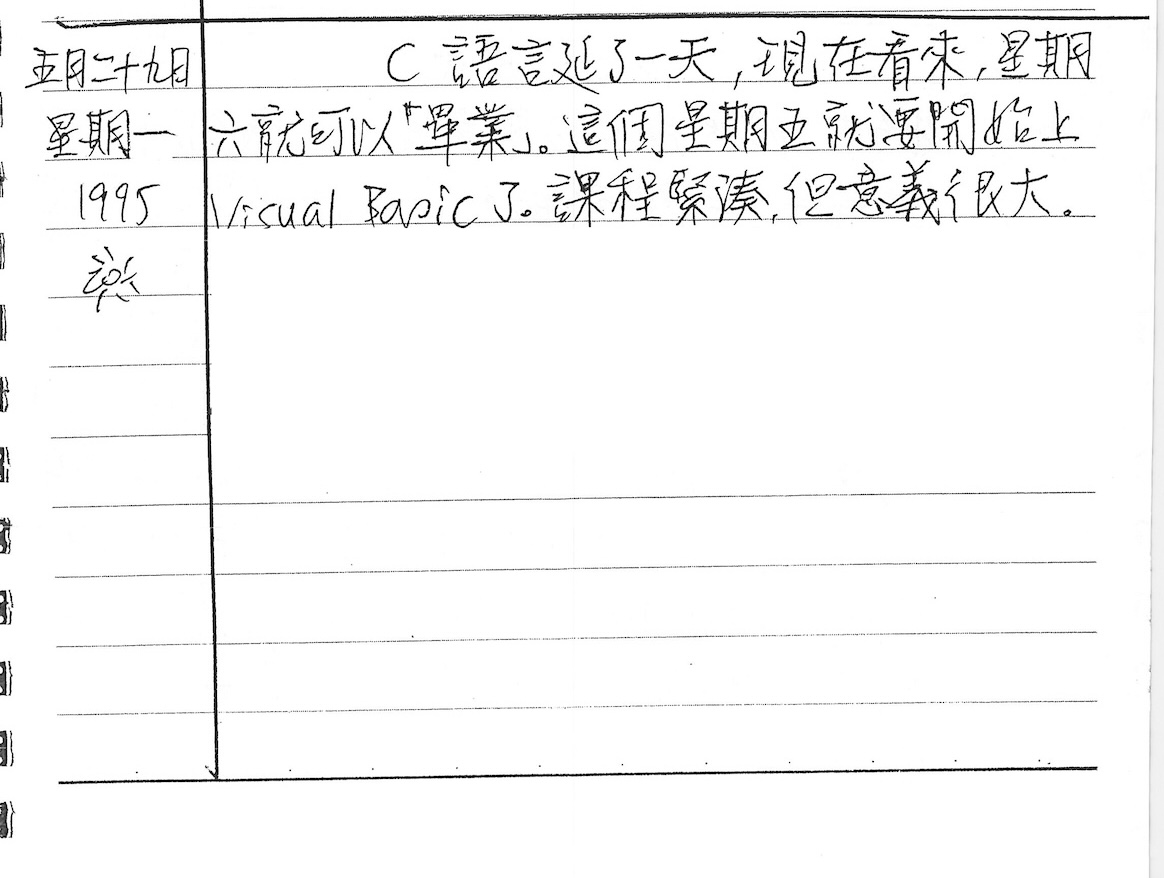 五月二十九日
星期一
1995
C 語言延了一天,現在看來,星期
六就可以「畢業」。這個星期五就要開始上
Visual Basic了。課程緊湊,但意義很大。